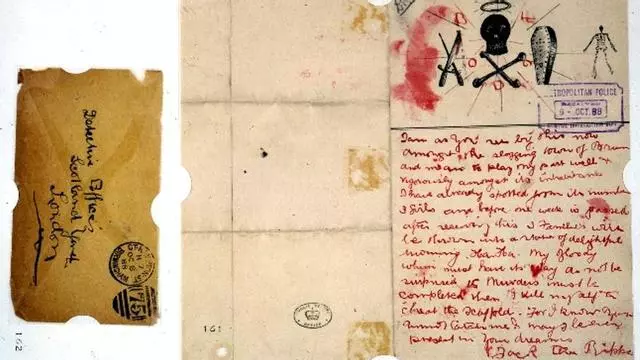 Detective Office
Scotland Yard
London
OC 8
88
75
162
161
METROPOLITAN POLICE
RECEIVED
9 - OCT. 88
I am as you see by this note
amongst the slogging town of Brum
and mean to play my part well &
vigorously amongst its inhabitants
I have already spotted from its number
3 girls and before one week is passed
after receiving this 3 Families will
be thrown into a state of delightful
mourning Ha. Ha. My Bloody
whim must have its way do not be
surprised Murders must be
completed then I kill myself to
cheat the Scaffold. For I know you
cannot catch me & may I be even
present in your dreams
Jack the Ripper